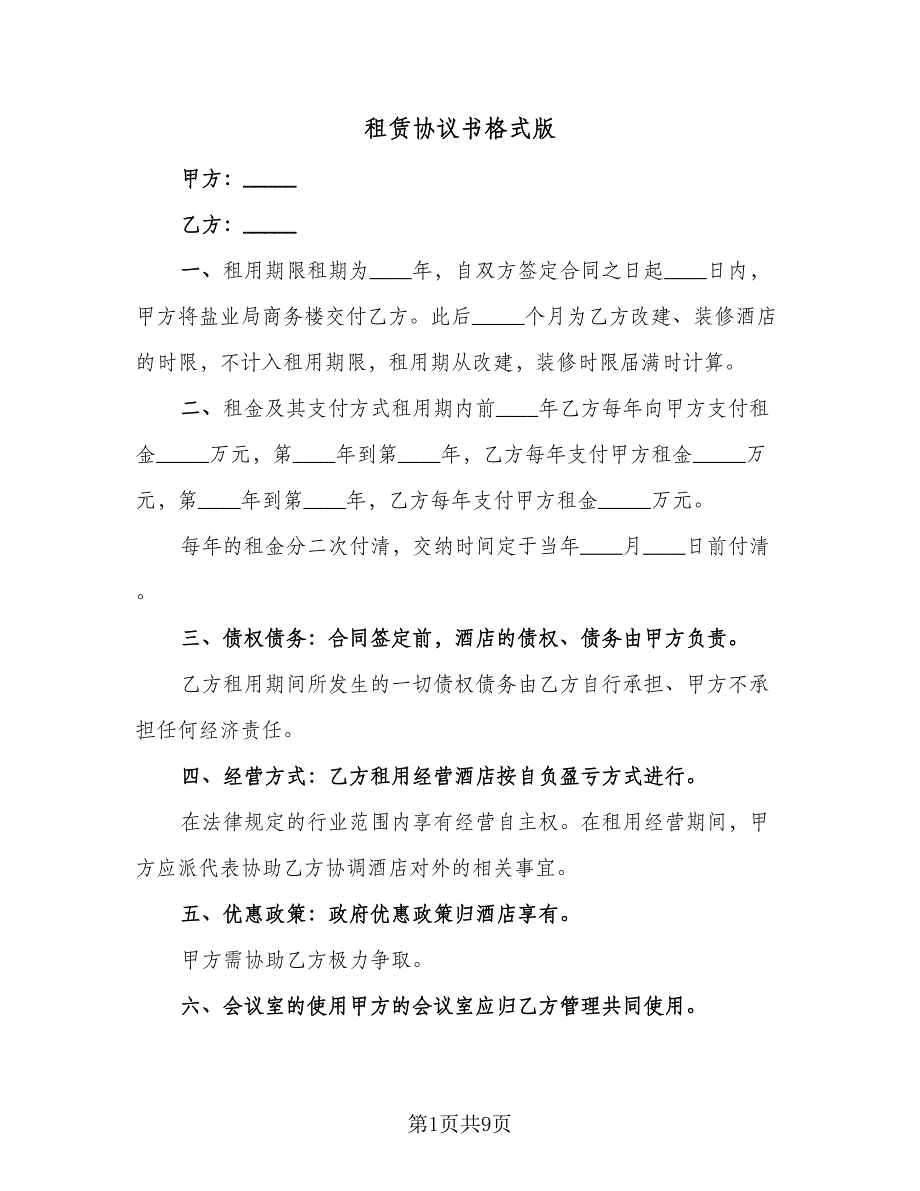 租赁协议书格式版
甲方：_____
乙方：_____
一、租用期限租期为____年，自双方签定合同之日起____日内，
甲方将盐业局商务楼交付乙方。此后_____个月为乙方改建、装修酒店
的时限，不计入租用期限，租用期从改建，装修时限届满时计算。
二、租金及其支付方式租用期内前____年乙方每年向甲方支付租
金_____万元，第____年到第____年，乙方每年支付甲方租金_____万
元，第____年到第____年，乙方每年支付甲方租金_____万元。
每年的租金分二次付清，交纳时间定于当年____月____日前付清
。
三、债权债务：合同签定前，酒店的债权、债务由甲方负责。
乙方租用期间所发生的一切债权债务由乙方自行承担、甲方不承
担任何经济责任。
四、经营方式：乙方租用经营酒店按自负盈亏方式进行。
在法律规定的行业范围内享有经营自主权。在租用经营期间，甲
方应派代表协助乙方协调酒店对外的相关事宜。
五、优惠政策：政府优惠政策归酒店享有。
甲方需协助乙方极力争取。
六、会议室的使用甲方的会议室应归乙方管理共同使用。
第1页共9页